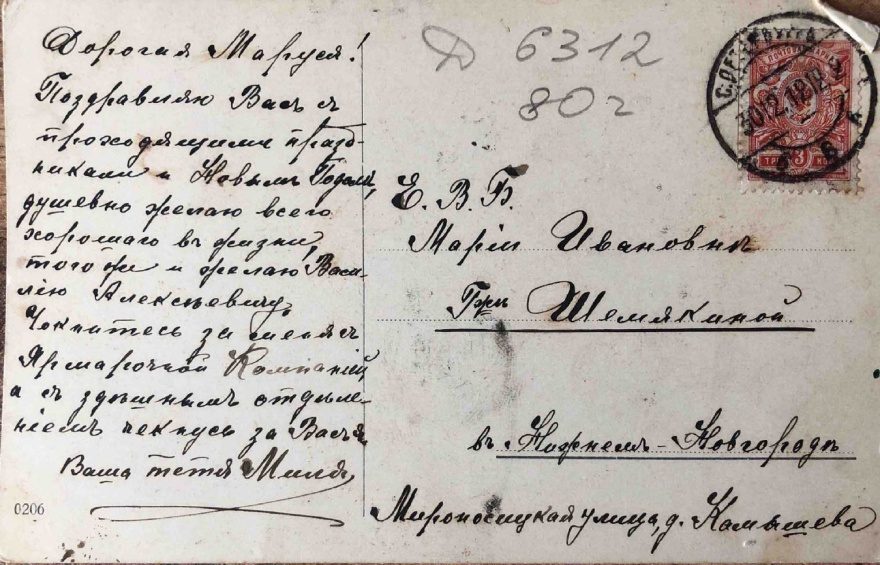 Дорогая Маруся!
Поздравляю Васъ с
проходящими празд-
никами и Новымъ Годомъ,
душевно желаю всего
хорошаго въ жизни,
того же и желаю Васи-
лію Алексѣевичу,
Чокнитесь за меня съ
Ярмарочной Компаніей,
а съ здѣшнымъ отдѣле-
ніемъ чокнусь за Васъ я
Ваша тетя Миля
0206
Д 6312
80 г
30.12.12
ТРИ 3 КОП
Е. В. Б.
Маріи Ивановнѣ
Гжѣ Шемякиной
въ Нижнемъ-Новгородѣ
Мироносицкая улица, д. Камышева